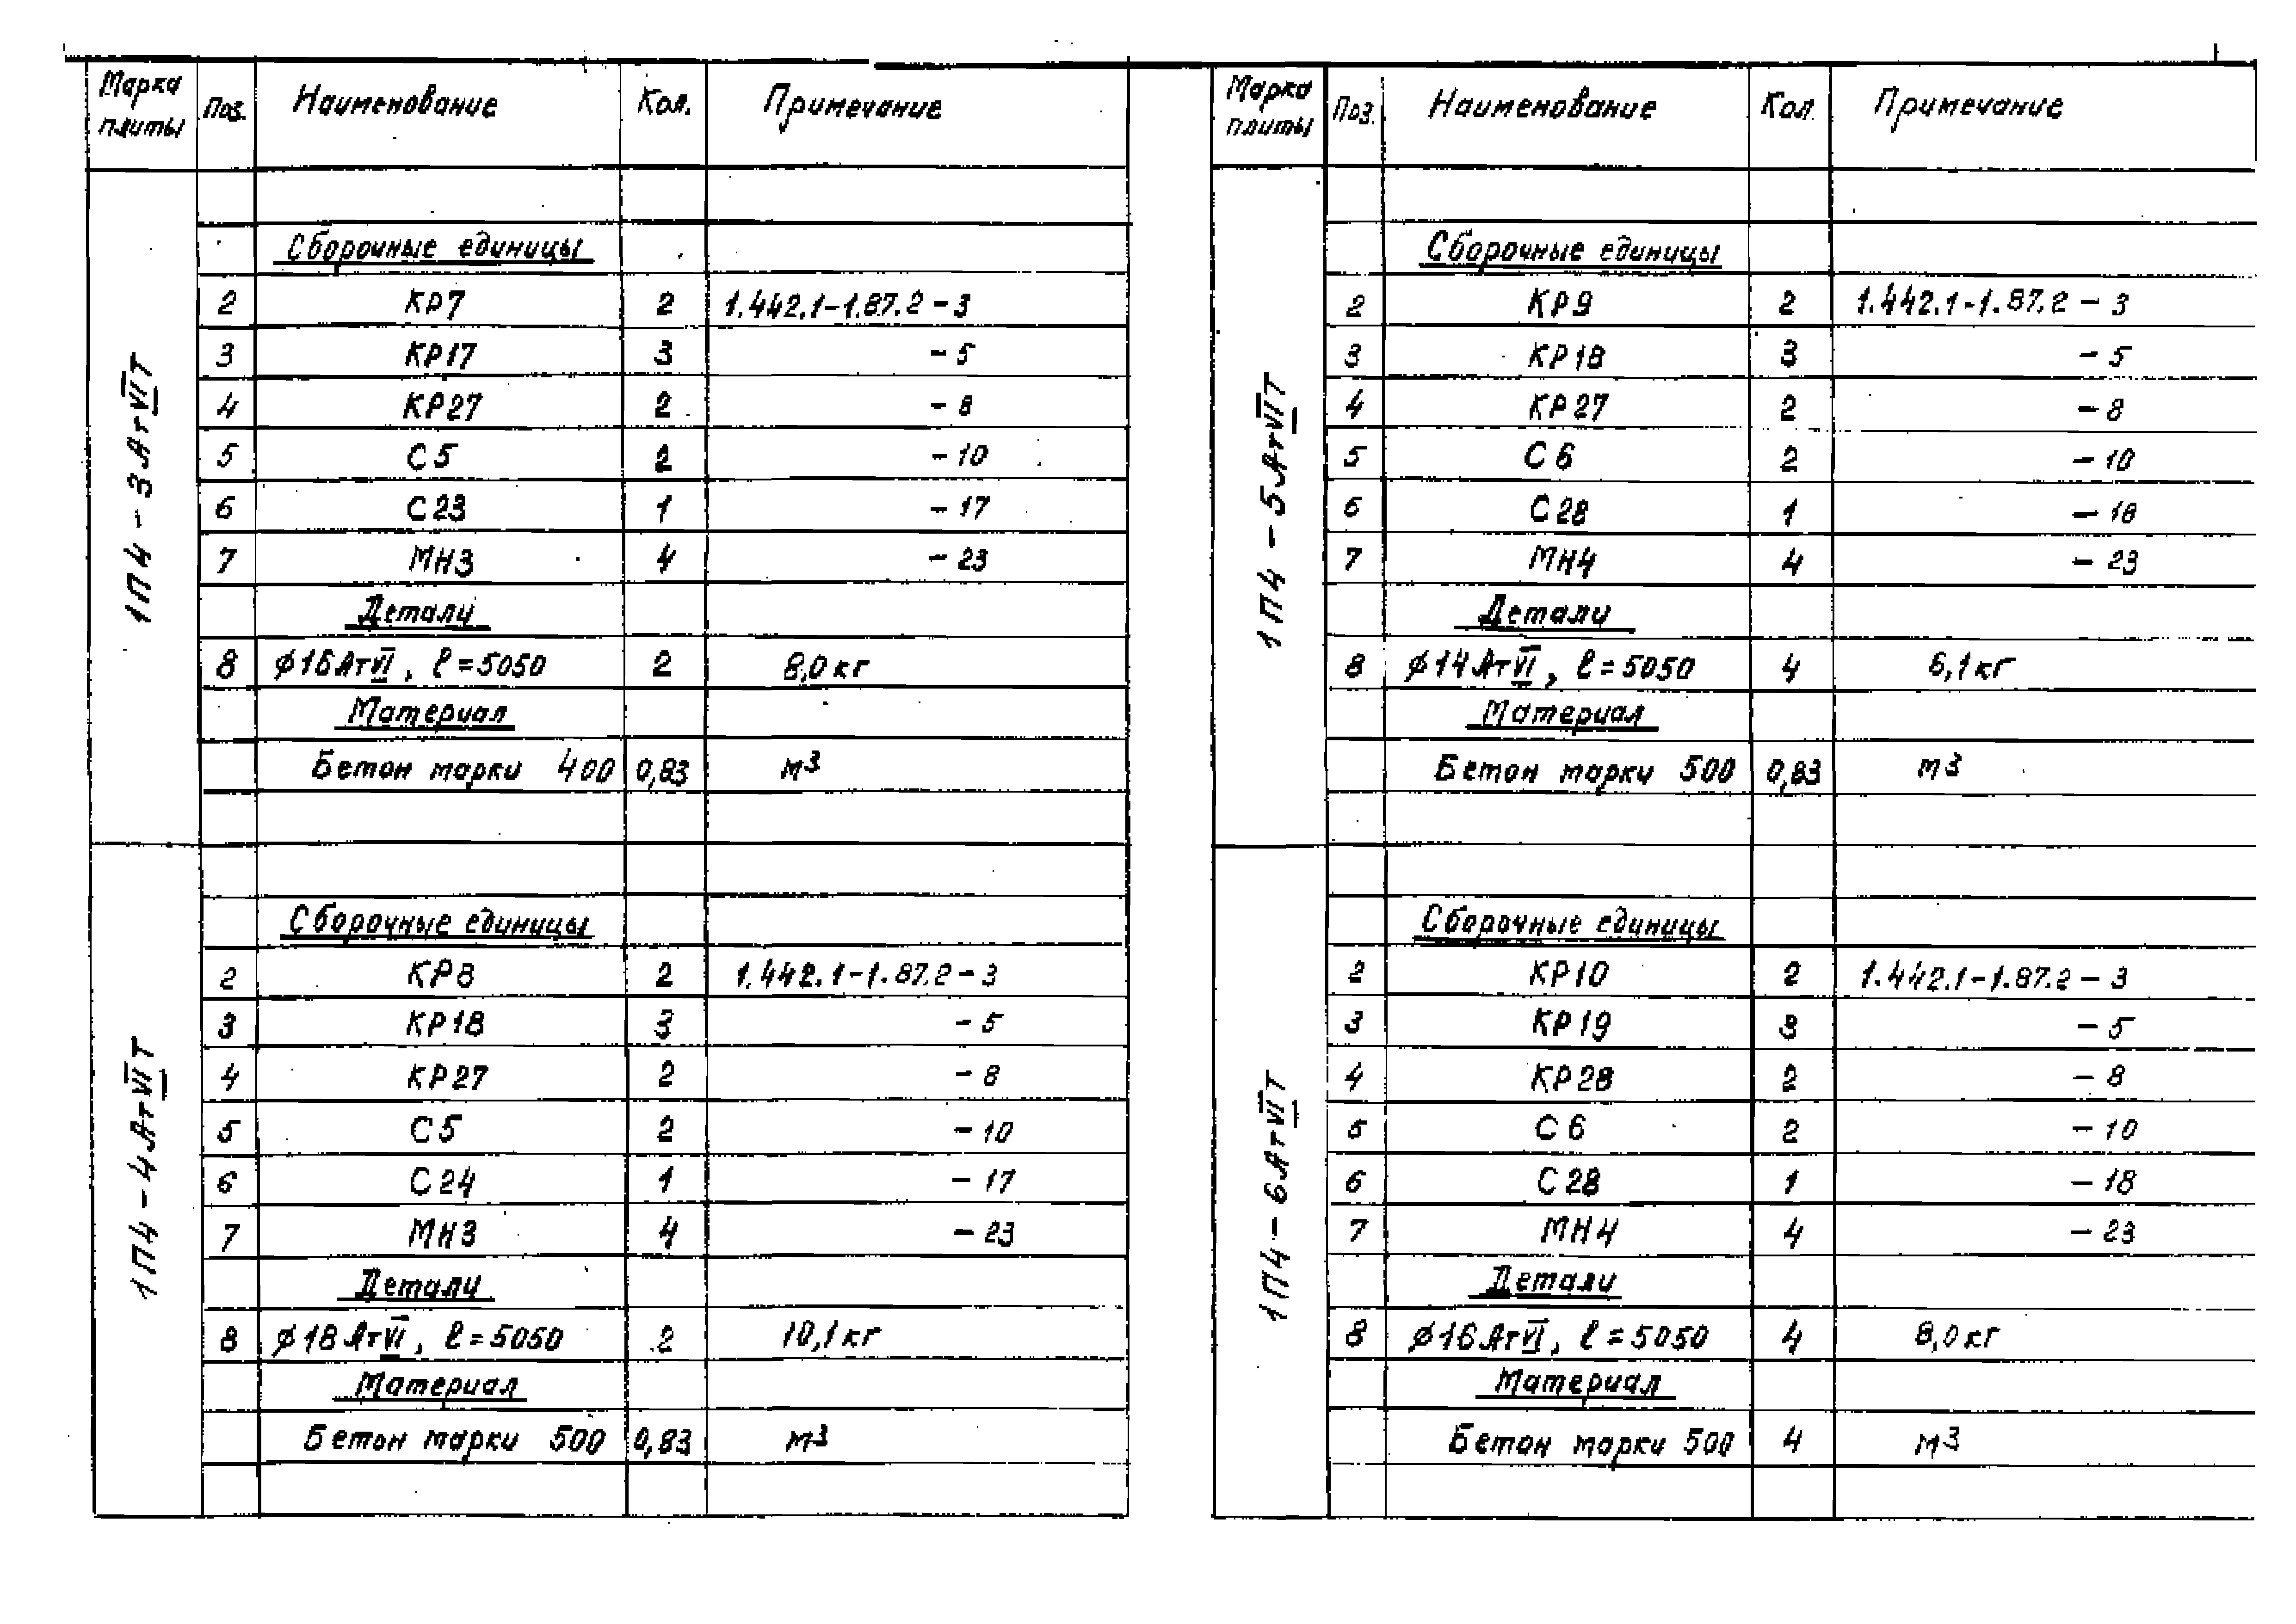 Марка плиты Поз. Наименование Кол. Примечание
1П4-3АтVIТ
Сборочные единицы
2 КР7 2 1.442.1-1.87.2-3
3 КР17 3 -5
4 КР27 2 -8
5 С5 2 -10
6 С23 1 -17
7 МН3 4 -23
Детали
8 ϕ16АтVI, ℓ=5050 2 8,0кг
Материал
Бетон марки 400 0,83 м3
1П4-4АтVIТ
Сборочные единицы
2 КР8 2 1.442.1-1.87.2-3
3 КР18 3 -5
4 КР27 2 -8
5 С5 2 -10
6 С24 1 -17
7 МН3 4 -23
Детали
8 ϕ18АтVI, ℓ=5050 2 10,1кг
Материал
Бетон марки 500 0,83 м3
Марка плиты Поз. Наименование Кол. Примечание
1П4-5АтVIТ
Сборочные единицы
2 КР9 2 1.442.1-1.87.2-3
3 КР18 3 -5
4 КР27 2 -8
5 С6 2 -10
6 С28 1 -18
7 МН4 4 -23
Детали
8 ϕ14АтVI, ℓ=5050 4 6,1кг
Материал
Бетон марки 500 0,83 м3
1П4-6АтVIТ
Сборочные единицы
2 КР10 2 1.442.1-1.87.2-3
3 КР19 3 -5
4 КР28 2 -8
5 С6 2 -10
6 С28 1 -18
7 МН4 4 -23
Детали
8 ϕ16АтVI, ℓ=5050 4 8,0кг
Материал
Бетон марки 500 4 м3